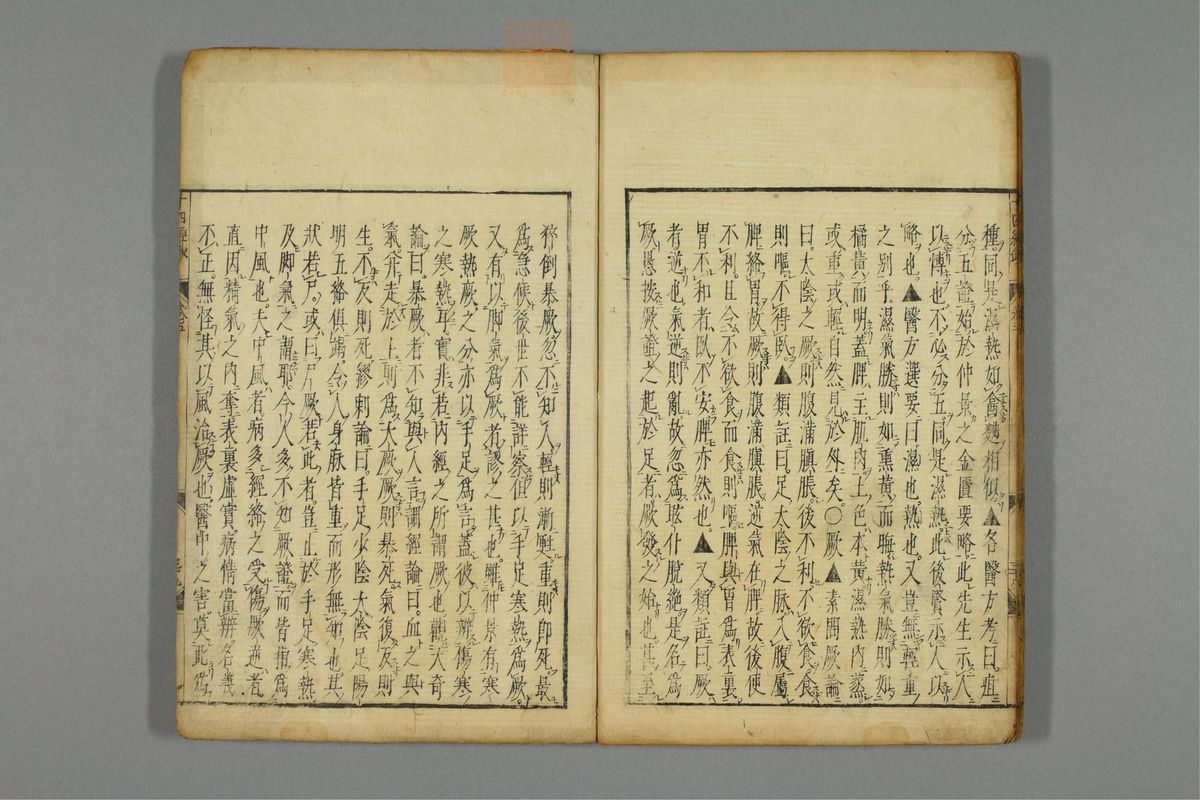 種同是濕熱如禽麺相似▲名醫方考曰疸
分五證始於仲景之金匱要略此先生示人
以博也不必分五同是濕熱此後賢示人以
略也▲醫方選要曰濕也熱也又豈無輕重
之別乎濕氣勝則如熏黃而晦熱氣勝則如
橘黃而明蓋脾主肌肉土色本黃濕熱內蒸
或重或輕自然見於外矣〇厥▲素問厥論
曰太陰之厥則腹滿䐜脹後不利不欲食食
則嘔不得臥▲類註曰足太陰之脉入腹屬
脾絡胃故厥則腹滿䐜脹逆氣在脾故後使
不利且令不欲食而食則嘔脾與胃為表裏
胃不和者臥不安脾亦然也▲又類註曰厥
者逆也氣逆則亂故忽為眩仆脫絕是名為
厥愚按厥證之起於足者厥發之始也甚至
猝倒暴厥忽不知人輕則漸甦重則即死最
為急候後世不能詳察但以手足寒熱為厥
又有以脚氣為厥者謬之甚也雖仲景有寒
厥熱厥之分亦以手足為言蓋彼以辨傷寒
之寒熱耳實非若內經之所謂厥也觀大奇
論曰暴厥者不知與人言調經論曰血之與
氣并走於上則為大厥厥則暴死氣復反則
生不反則死繆刺論曰手足少陰太陰足陽
明五絡俱竭令人身脉皆重而形無知也其
狀若尸或曰尸厥若此者豈止於手足寒熱
及脚氣之謂耶今人多不知厥證而皆指為
中風也夫中風者病多經絡之受傷厥逆者
直因精氣之內奪表裏虛實病情當辨名義
不正無怪其以風治厥也醫中之害莫此為